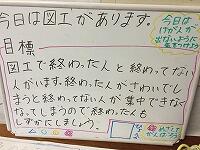 今日は図工があります。
今日は
けがんが
出ないように
気をつけよう
目標
図工で終わった人と終わってない
人がいます。終わった人がさわいでし
まうと終わってない人が集中できなく
なってしまうので終わった人も
しずかにしましょう。